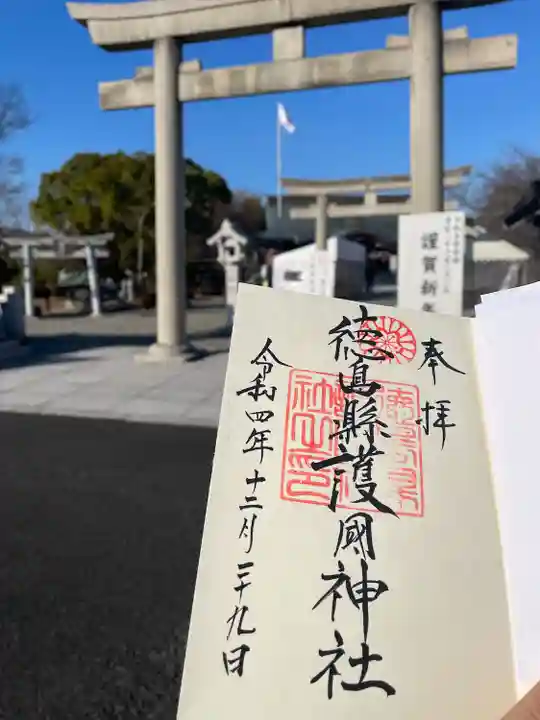 奉拝
徳島縣護國神社
令和四年十二月二十九日
謹賀新年